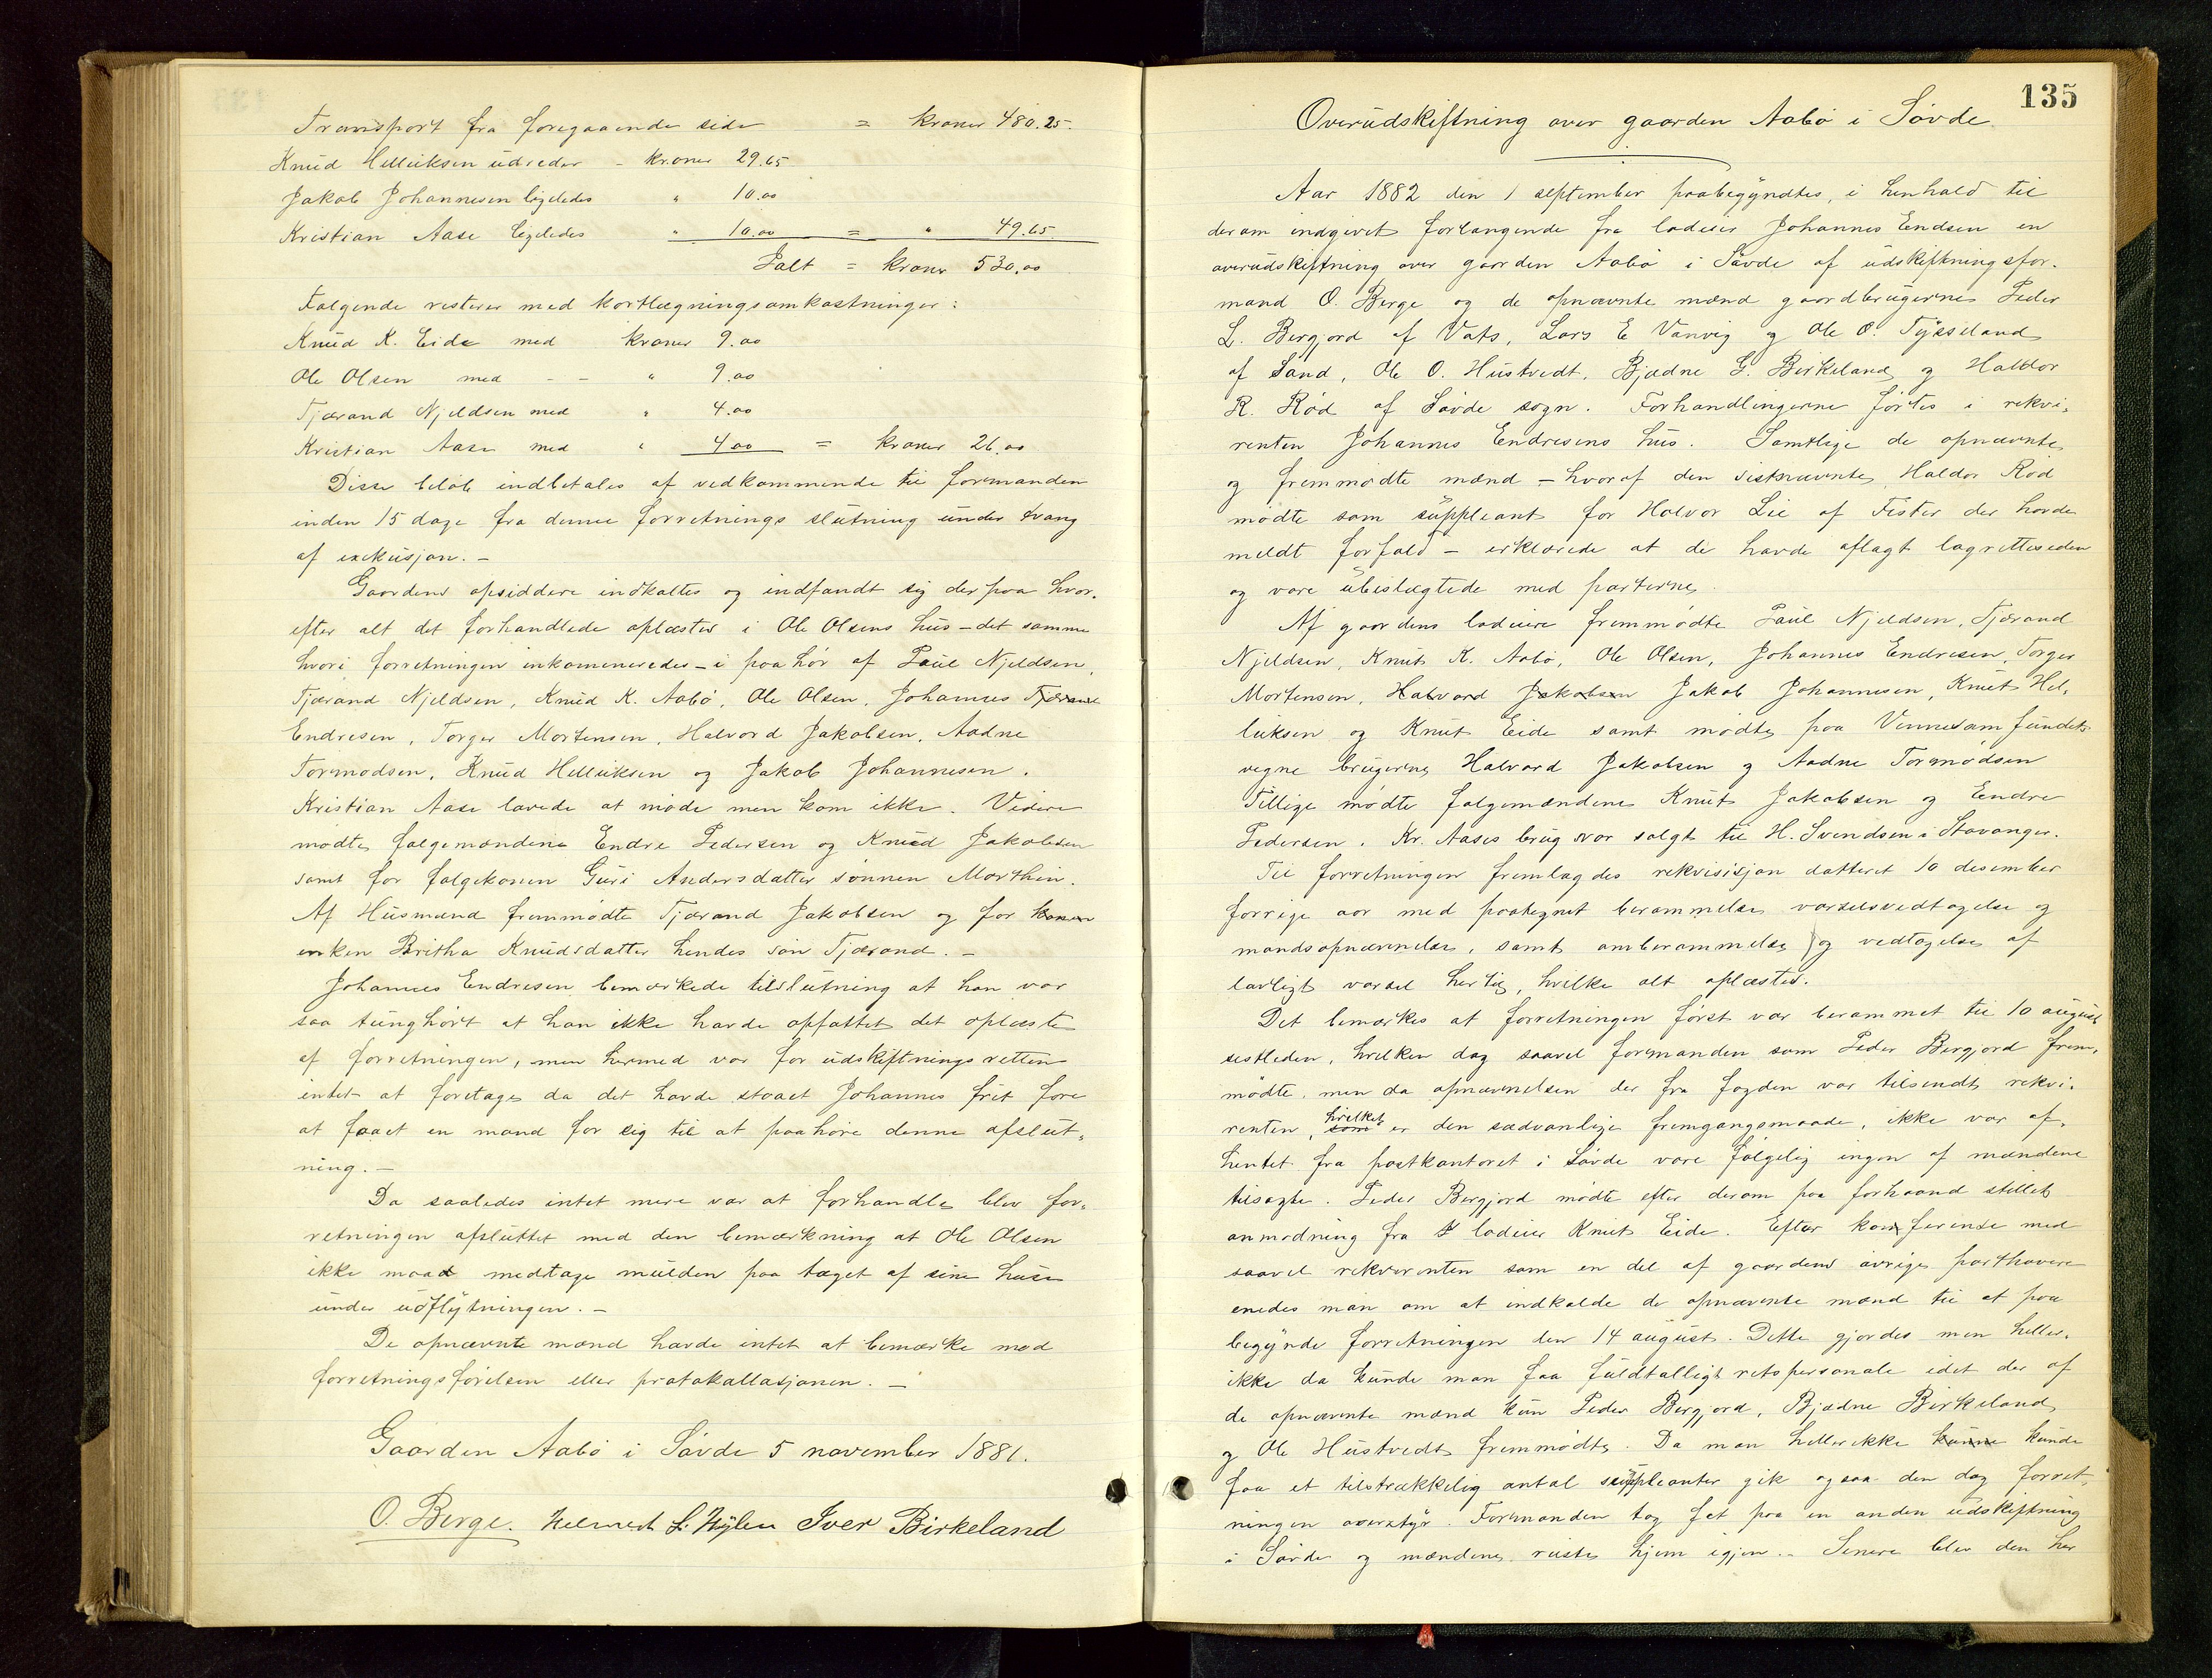 Transport fra foregaaende side = kroner 480.25.
Knud Helliksen udreder - kroner 29.65
Jakob Johannesen ligeledes " 10.00
Kristian Aase ligeledes " 10.00 = " 49.65
Ialt = kroner 530.00
Følgende resterer med kortlægningsomkostninger:
Knud K. Eide med kroner 9.00
Ole Olsen med - - " 9.00
Tjærand Njeldsen med " 4.00
Kristian Aase med " 4.00 = kroner 26.00
Disse beløb indbetales af vedkommende til formanden
inden 15 dage fra denne forretnings slutning under tvang
af exekusjon. -
Gaardens opsiddere indkaltes og indfandt sig der paa hvor-
efter alt det forhandlede oplæstes i Ole Olsens hus - det samme
hvori forretningen inkomineredes - i paahør af Paul Njeldsen,
Tjærand Njeldsen, Knud K. Aabø, Ole Olsen, Johannes Tjærand
Endresen, Torger Mortensen, Halvord Jakobsen, Aadne
Tormodsen, Knud Helliksen og Jakob Johannesen.
Kristian Aase lovede at møde men kom ikke. Videre
mødte følgemændene Endre Pedersen og Knud Jakobsen
samt for følgekonen Guri Andersdatter sønnen Morthin.
Af Husmænd fremmødte Tjærand Jakobsen og for konen
enken Britha Knudsdatter hendes søn Tjærand. -
Johannes Endresen bemærkede tilslutning at han var
saa tunghørt at han ikke havde opfattet det oplæste
af forretningen, men hermed var for udskiftningsretten
intet at foretage da det havde staaet Johannes frit fore
at faaet en mand for sig til at paahøre denne afslut-
ning. -
Da saaledes intet mere var at forhandle blev for-
retningen afsluttet med den bemærkning at Ole Olsen
ikke maa medtage mulden paa taget af sine huse
under udflytningen. -
De opnævnte mænd havde intet at bemærke mod
forretningsførelsen eller protokollasjonen. -
Gaarden Aabø i Søvde 5 november 1881.
O. Berge. Helmech L. Hylen Iver Birkeland
135
Overudskiftning over gaarden Aabø i Søvde.
Aar 1882 den 1 september paabegyndtes, i henhold til
derom indgivet forlangende fra lodeier Johannes Endsen en
overudskiftning over gaarden Aabø i Søvde af udskiftningsfor-
mand O. Berge og de opnævnte mænd gaardbrugerne Peder
L. Bergjord af Vats, Lars E Vanvig og Ole O. Tysseland
af Sand, Ole O. Hustvedt, Bjædne G. Birkeland og Haldor
R. Rød af Søvde sogn. Forhandlingerne førtes i rekvi-
renten Johannes Endresens hus. Samtlige de opnævnte
og fremmødte mænd - hvoraf den sistnævnte Haldor Rød
mødte som suppleant for Halvor Lie af Fister der havde
meldt forfald - erklærede at de havde aflagt lagretteseden
og vare ubeslægtede med parterne.
Af gaardens lodeiere fremmødte Paul Njeldsen, Tjærand
Njeldsen, Knut K. Aabø, Ole Olsen, Johannes Endresen, Torger
Mortensen, Halvord Jakobsen Jakob Johannesen, Knut Hel-
liksen og Knut Eide samt mødte paa Vennesamfundets
vegne brugerne Halvard Jakobsen og Aadne Tormodsen
Tillige mødte følgemændene Knut Jakobsen og Endre
Pedersen. Kr. Aases brug var solgt til H. Svendsen i Stavanger.
Til forretningen fremlagdes rekvisisjon datteret 10 desember
forrige aar med paategnet berammelse varselsvedtagelse og
mandsopnævnelse, samt omberammelse og vedtagelse af
lovligt varsel hertil, hvilke alt oplæstes.
Det bemærkes at forretningen først var berammet til 10 august
sistleden, hvilken dag saavel formanden som Peder Bergjord frem-
mødte, men da opnævnelsen der fra fogden var tilsendt rekvi-
renten, som hvilket er den sædvanlige fremgangsmaade, ikke var af-
hentet fra postkontoret i Søvde vare følgelig ingen af mændene
tilsagte. Peder Bergjord mødte efter derom paa forhaand stillet
anmodning fra lodeier Knut Eide. Efter konferense med
saavel rekvirenten som en del af gaardens øvrige parthavere
enedes man om at indkalde de opnævnte mænd til at paa
begynde forretningen den 14 august. Dette gjordes men heller-
ikke da kunde man faa fuldtalligt retspersonale idet der af
de opnævnte mænd kun Peder Bergjord, Bjædne Birkeland
og Ole Hustvedt fremmødte. Da man hellerikke kunne kunde
faa et tilstrækkelig antal suppleanter gik ogsaa den dag forret-
ningen overstyr. Formanden tog fat paa en anden udskiftning
i Søvde og mændene reiste hjem igjen. - Senere blev den her